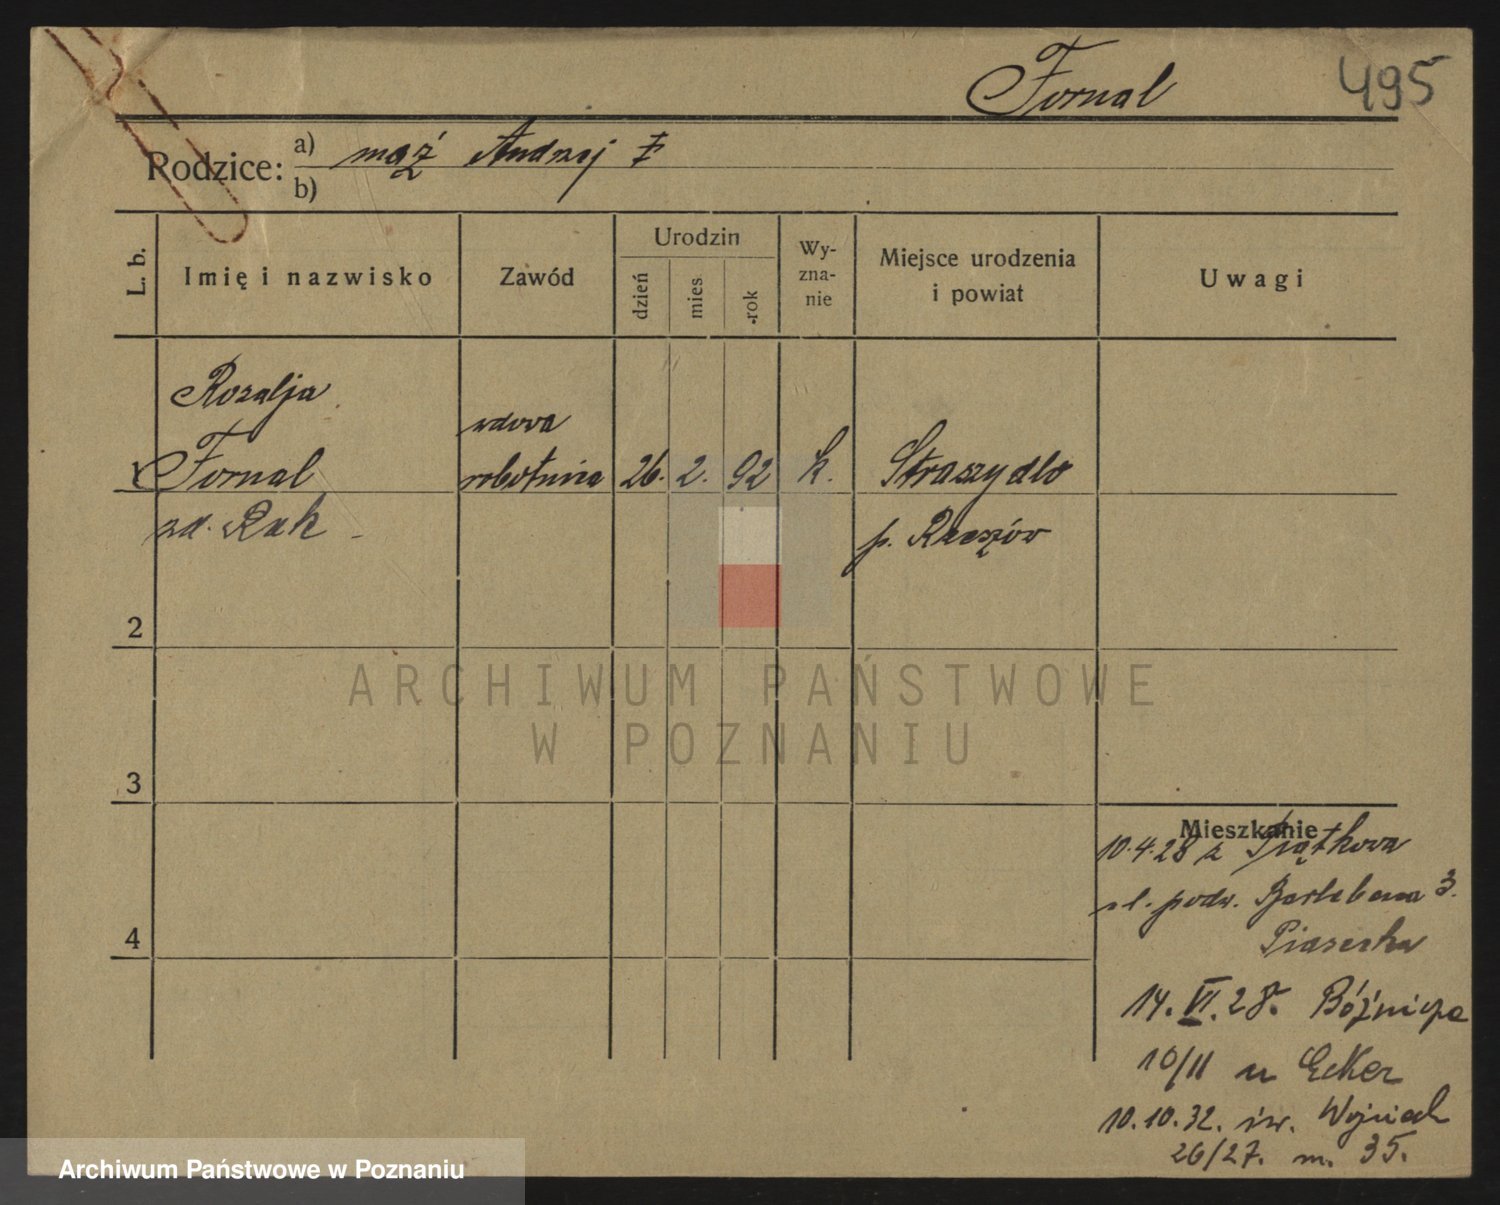 Fornal 495
Rodzice: a) mąż Andrzej F
b)
L. b. Imię i nazwisko Zawód Urodzin Wy-zna-nie Miejsce urodzenia i powiat Uwagi
dzień mies rok
Rozalja
wdowa
1 Fornal robotnica 26. 2. 92 k. Straszydło
zd. Rak p. Rzeszów
2
ARCHIWUM PAŃSTWOWE
W POZNANIU
3
Mieszkanie
10.4.28 z Piątkowa
podw. 3.
Piasecka
14. VI. 28. Bóźnicza
10/11 u Ecker
10.10.32. św. Wojciech
26/27. m. 35.
4
Archiwum Państwowe w Poznaniu